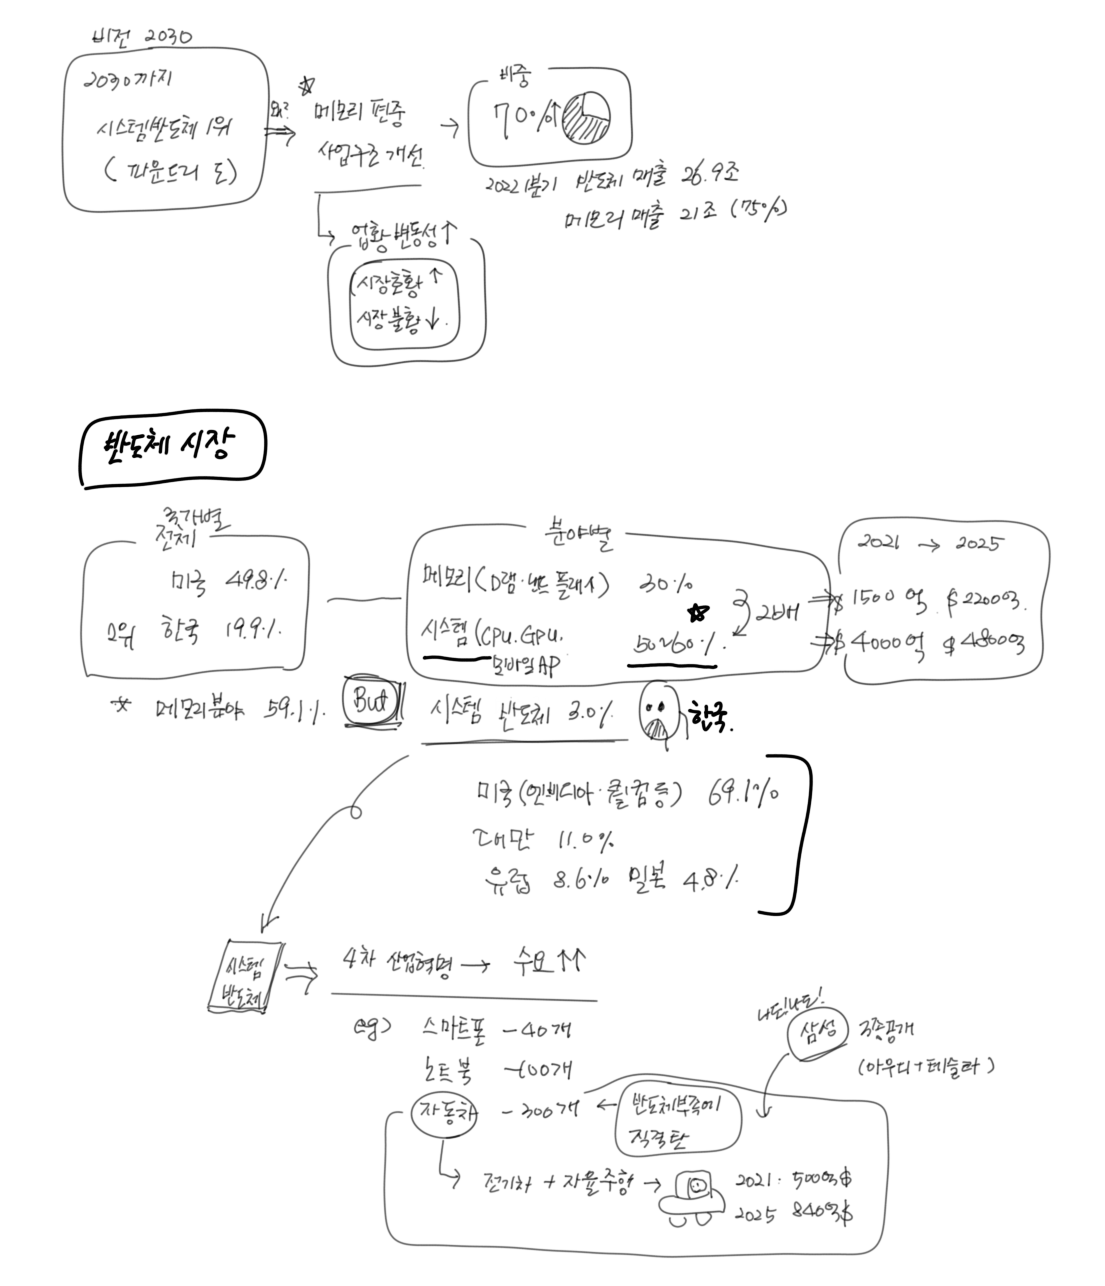 비전 2030
2030까지
시스템반도체 1위
( 파운드리 도)
왜?
메모리 편중
사업구조 개선
비중
70%↑
2022 1분기 반도체 매출 26.9조
메모리 매출 21조 (75%)
업황변동성↑
시장호황↑
시장불황↓
반도체 시장
국가별
전체
미국 49.8%
2위 한국 19.9%
* 메모리분야 59.1%
분야별
메모리(D램·낸드플래시) 30%
시스템(CPU. GPU. 50~60%
모바일AP
2배
2021 → 2025
$1500억 $2200억
$4000억 $4800억
But
시스템 반도체 3.0%
한국.
미국(엔비디아·퀄컴등) 69.1%
대만 11.0%
유럽 8.6% 일본 4.8%
시스템
반도체
4차 산업혁명 → 수요↑↑
eg) 스마트폰 - 40개
노트북 - 100개
자동차 - 300개 ←
반도체부족에
직격탄
나도!나도!
삼성
3종공개
(아우디+테슬라)
전기차 + 자율주행 →
2021. 500억$
2025 840억$